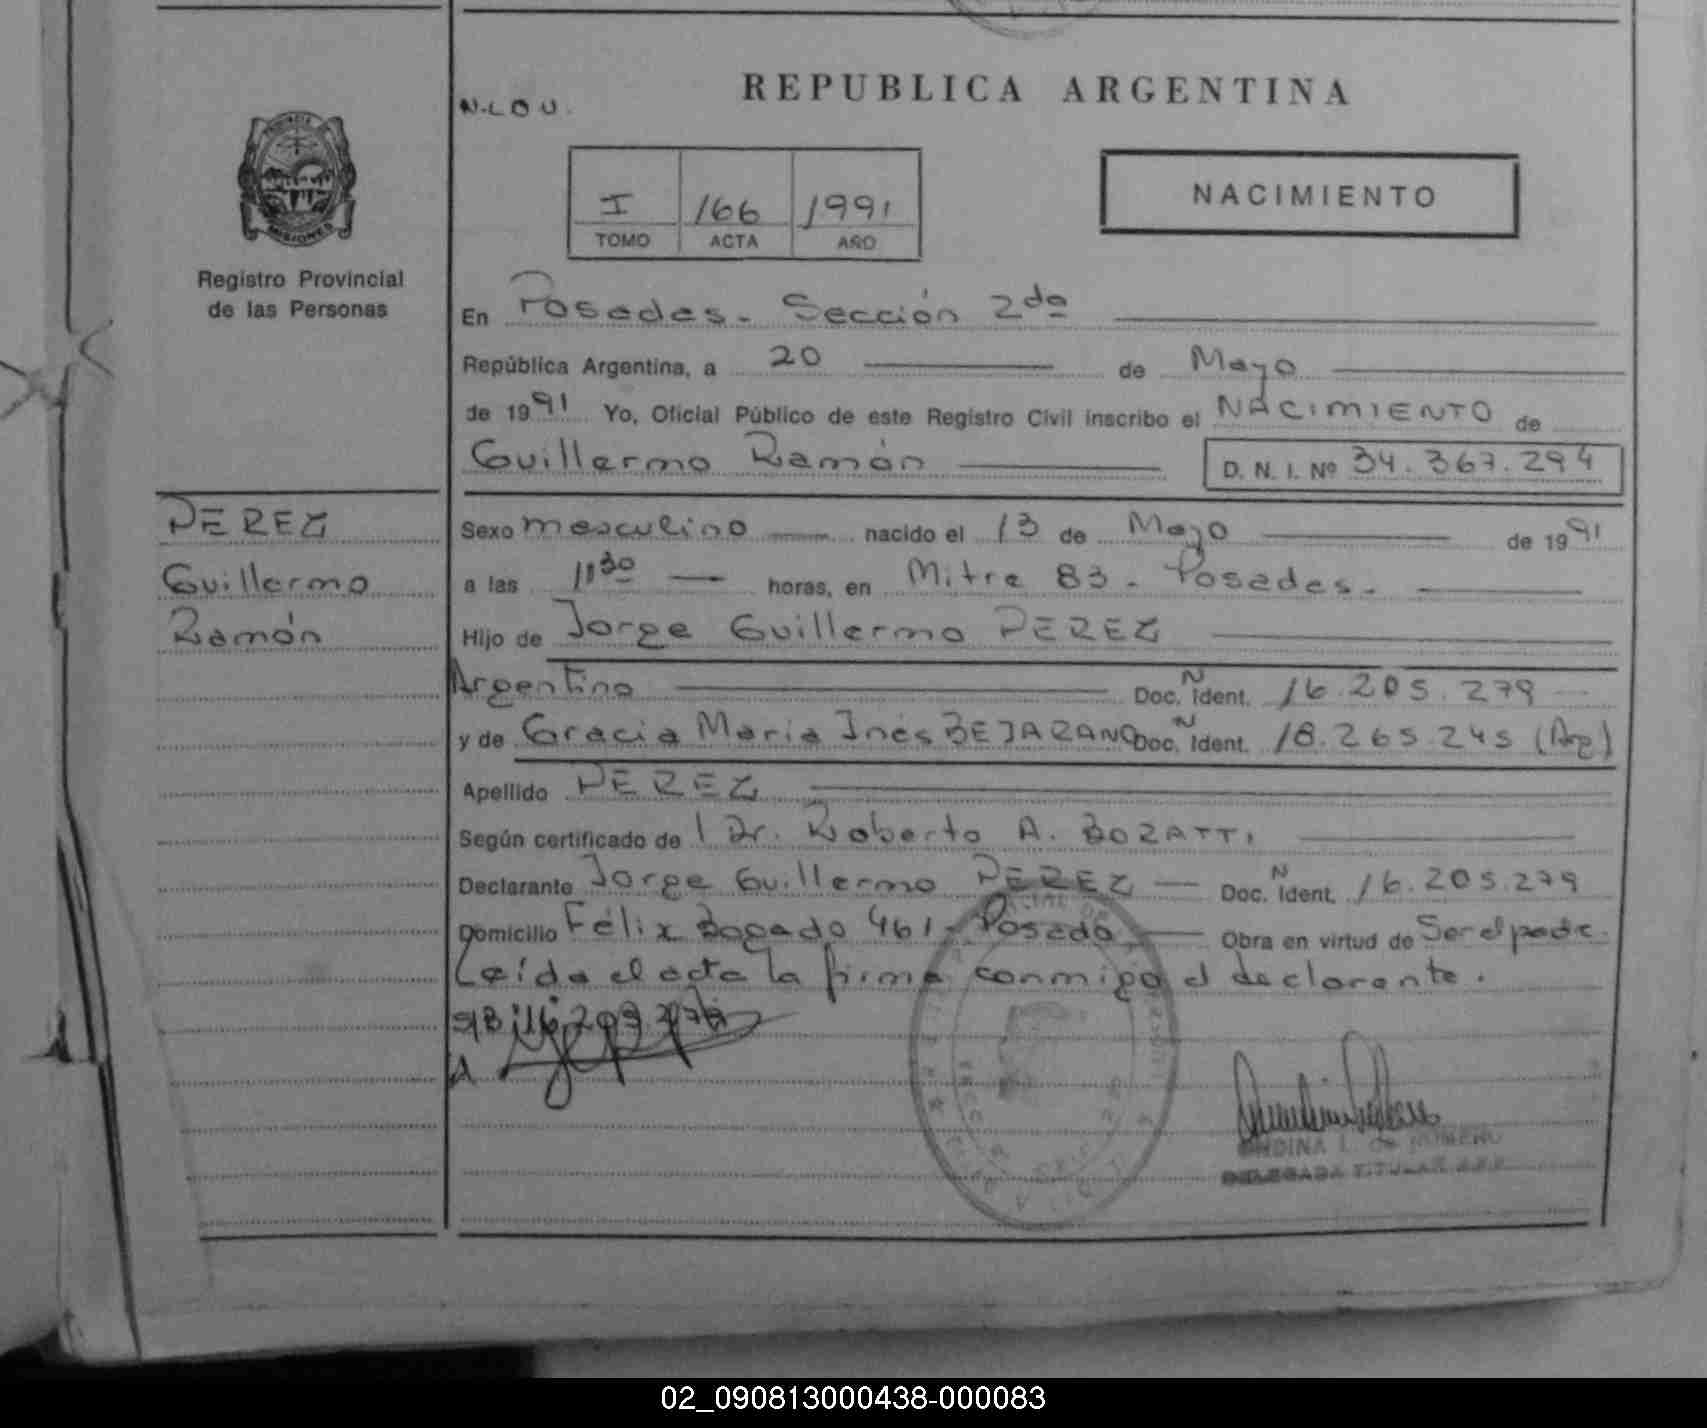 REPUBLICA ARGENTINA
N.LOU.
I 166 1991
TOMO ACTA AÑO
NACIMIENTO
PROVINCIA
MISIONES
Registro Provincial
de las Personas
En Posadas. Sección 2da
República Argentina, a 20 de Mayo
de 1991 Yo, Oficial Público de este Registro Civil inscribo el NACIMIENTO de
Guillermo Ramón D. N. I. Nº 34.367.294
PEREZ
Guillermo
Ramón
Sexo masculino nacido el 13 de Mayo de 1991
a las 11 30 horas, en Mitre 83 - Posadas.
Hijo de Jorge Guillermo PEREZ
Argentino Doc. N Ident. 16.205.279
y de Gracia María Inés BEJARANO Doc. N Ident. 18.265.245 (Arg)
Apellido PEREZ
Según certificado de l Dr. Roberto A. BOZATTI
Declarante Jorge Guillermo PEREZ Doc. N Ident. 16.205.279
Domicilio Félix Bogado 461 - Posadas Obra en virtud de Ser el padre.
Leída el acta la firma conmigo el declarante.
S/B 16.205.279
A
L. de ROMERO
DELEGADA TITULAR
02_090813000438-000083